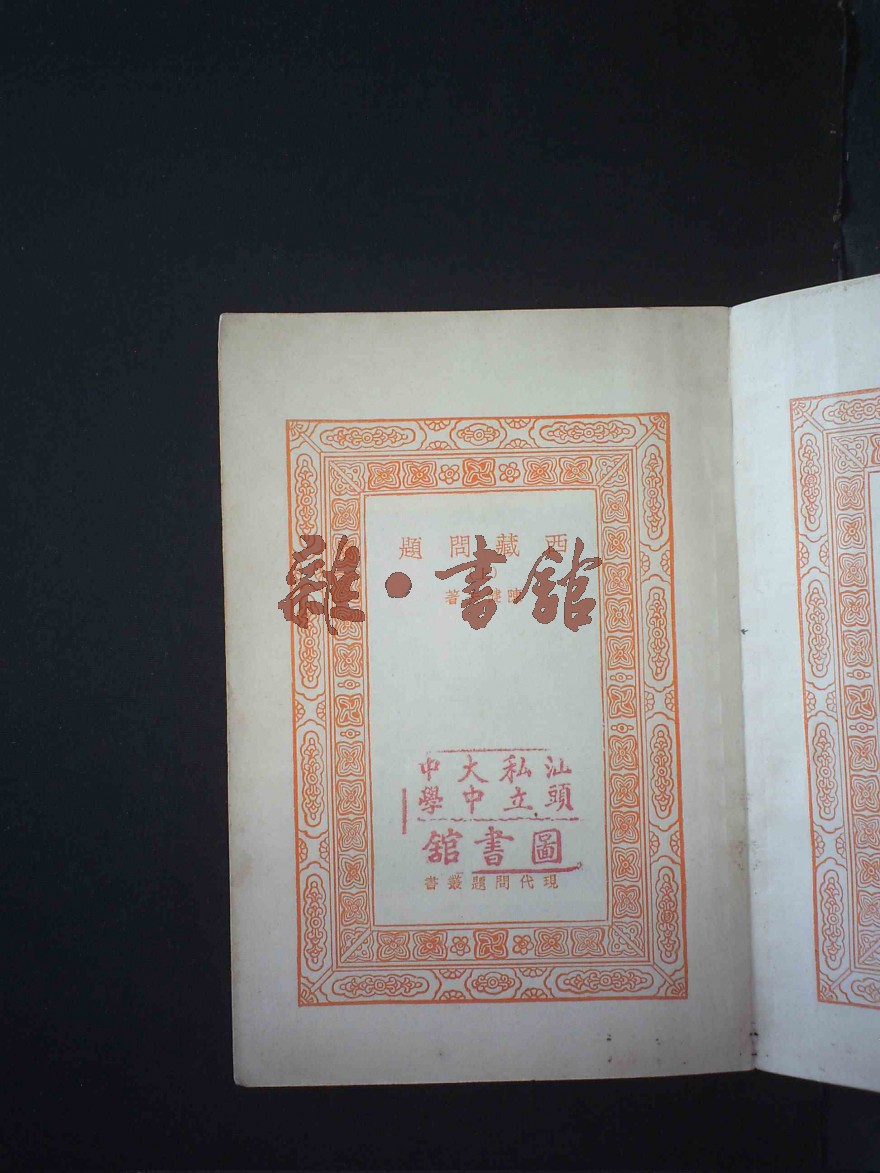 西藏問題
陳健夫著
雜·書舘
汕頭私立大中中學
圖書舘
現代問題叢書